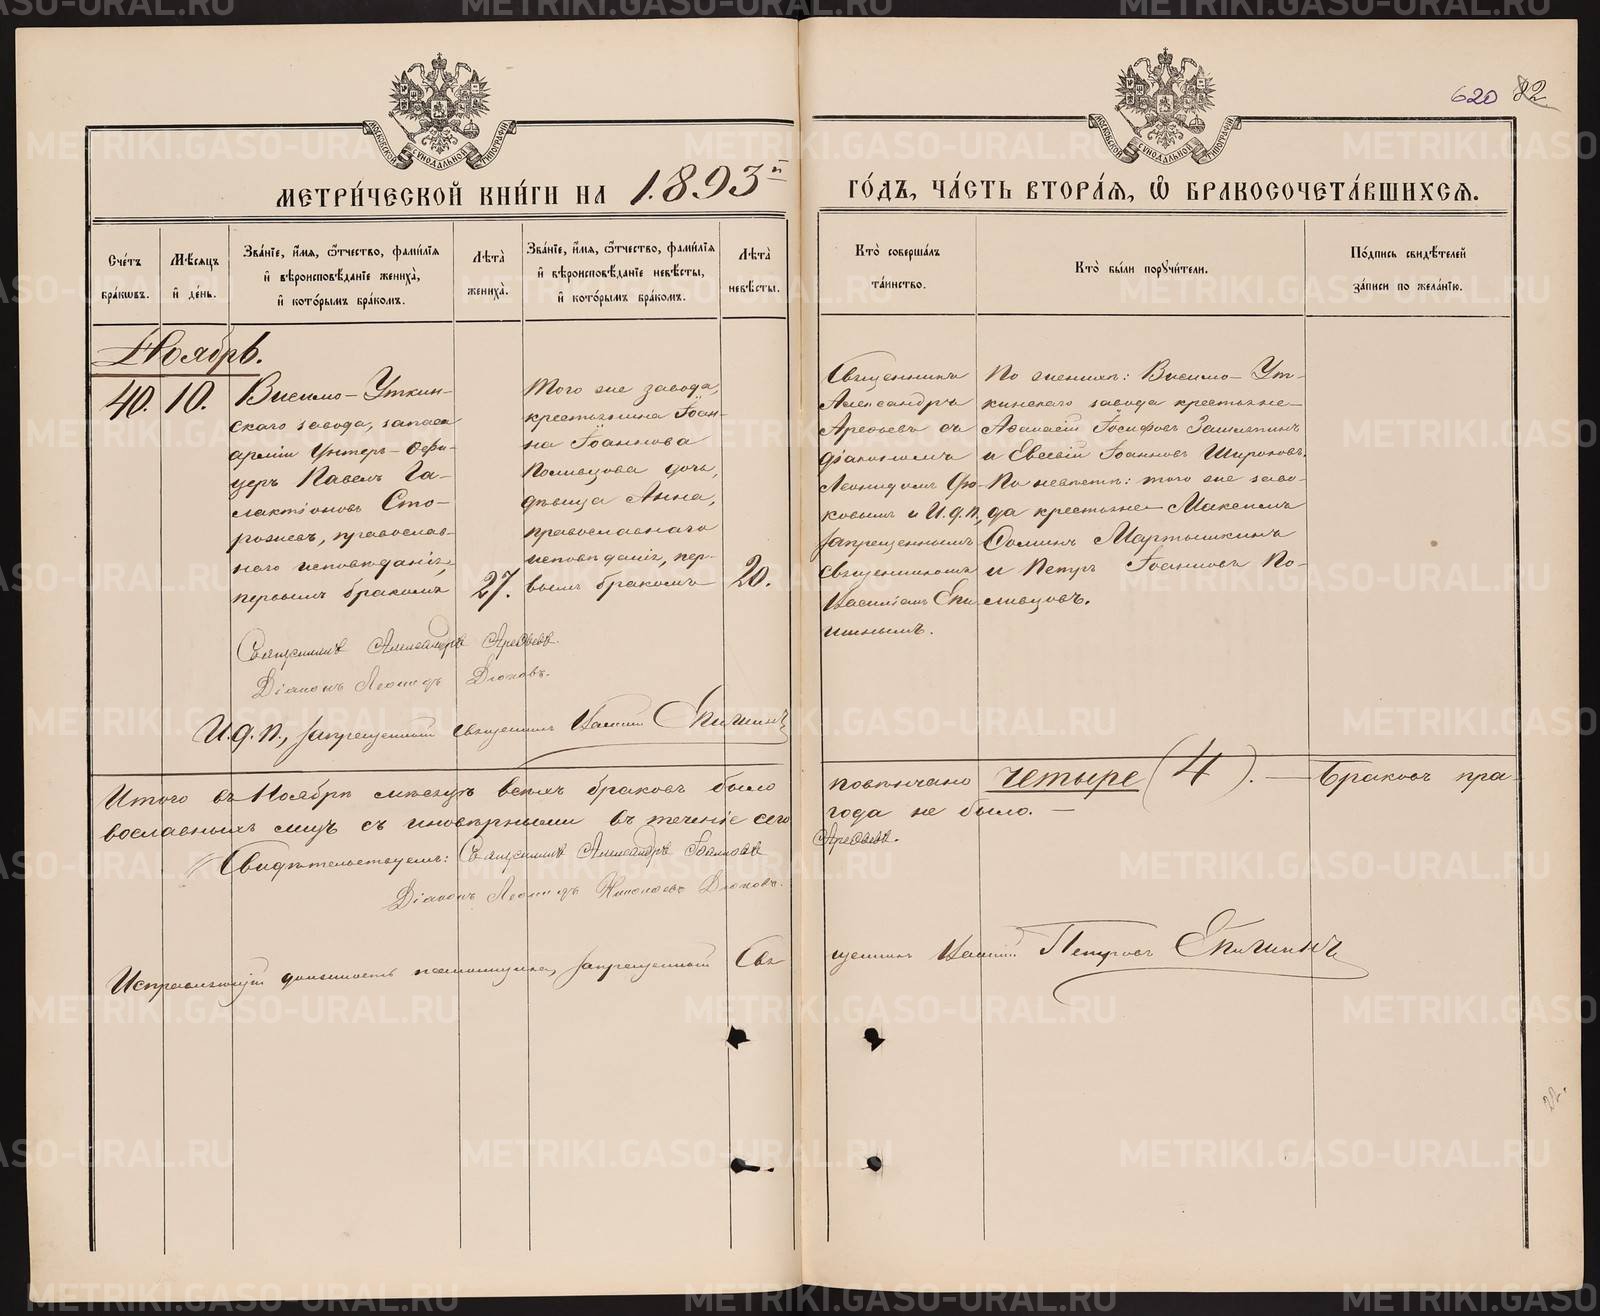 620 82
МЕТРИ́ЧЕСКОЙ КНИ́ГИ НА 1893й
ГО́ДЪ, ЧА́СТЬ ВТОРА́Я, Ѡ҆ БРАКОСОЧЕТА́ВШИХСЯ.
Сче́тъ бра́кѡвъ.
Мѣ́сяцъ и҆ де́нь.
Зва́нїе, и҆́мя, ѻ҆́тчество, фами́лїя и҆ вѣроисповѣ́данїе жениха̀, и҆ кото́рымъ бра́комъ.
Лѣта̀ жениха̀.
Зва́нїе, и҆́мя, ѻ҆́тчество, фами́лїя и҆ вѣроисповѣ́данїе невѣ́сты, и҆ кото́рымъ бра́комъ.
Лѣта̀ невѣ́сты.
Кто̀ соверша́лъ та́инство.
Кто̀ бы́ли порꙋчи́тели.
По́дпись свидѣ́телей за́писи по жела́нїю.
Ноябрь.
40. 10.
Висимо-Уткин-
скаго завода, запаса
арміи Унтеръ-Офи-
церъ Павелъ Га-
лактіоновъ Сто-
рожевъ, православ-
наго исповѣданія,
первымъ бракомъ
27.
Того же завода,
крестьянина Іоан-
на Іоаннова
Поливцова дочь,
дѣвица Анна,
православнаго
исповѣданія, пер-
вымъ бракомъ
20.
Священникъ
Александръ
Арефьевъ съ
діакономъ
Леонидомъ
ковымъ и И.д.п,
запрещеннымъ
Священникомъ
Василіемъ Епи
шинымъ.
По женихѣ: Висимо-Ут-
кинскаго завода крестьяне
Аѳанасій Іосифовъ
и Евсевій Іоанновъ Широковъ.
По невѣстѣ: того же заво-
да крестьяне Максимъ
Мартышкинъ
и Петръ Іоанновъ По-
ливцовъ.
Священникъ Александръ Арефьевъ.
Діаконъ Леонидъ
И.д.п., запрещенный священникъ Василій Епишинъ
Итого въ Ноябрѣ мѣсяцѣ всѣхъ браковъ было повѣнчано четыре (4). — Браковъ пра-
вославныхъ лицъ съ иновѣрными въ теченіе сего года не было. —
Свидѣтельствуемъ: Священникъ Александръ Іоанновъ Арефьевъ.
Діаконъ Леонидъ Николаевъ
Исправляющій должность псаломщика, запрещенный Свя щенникъ Василій Петровъ Епишинъ